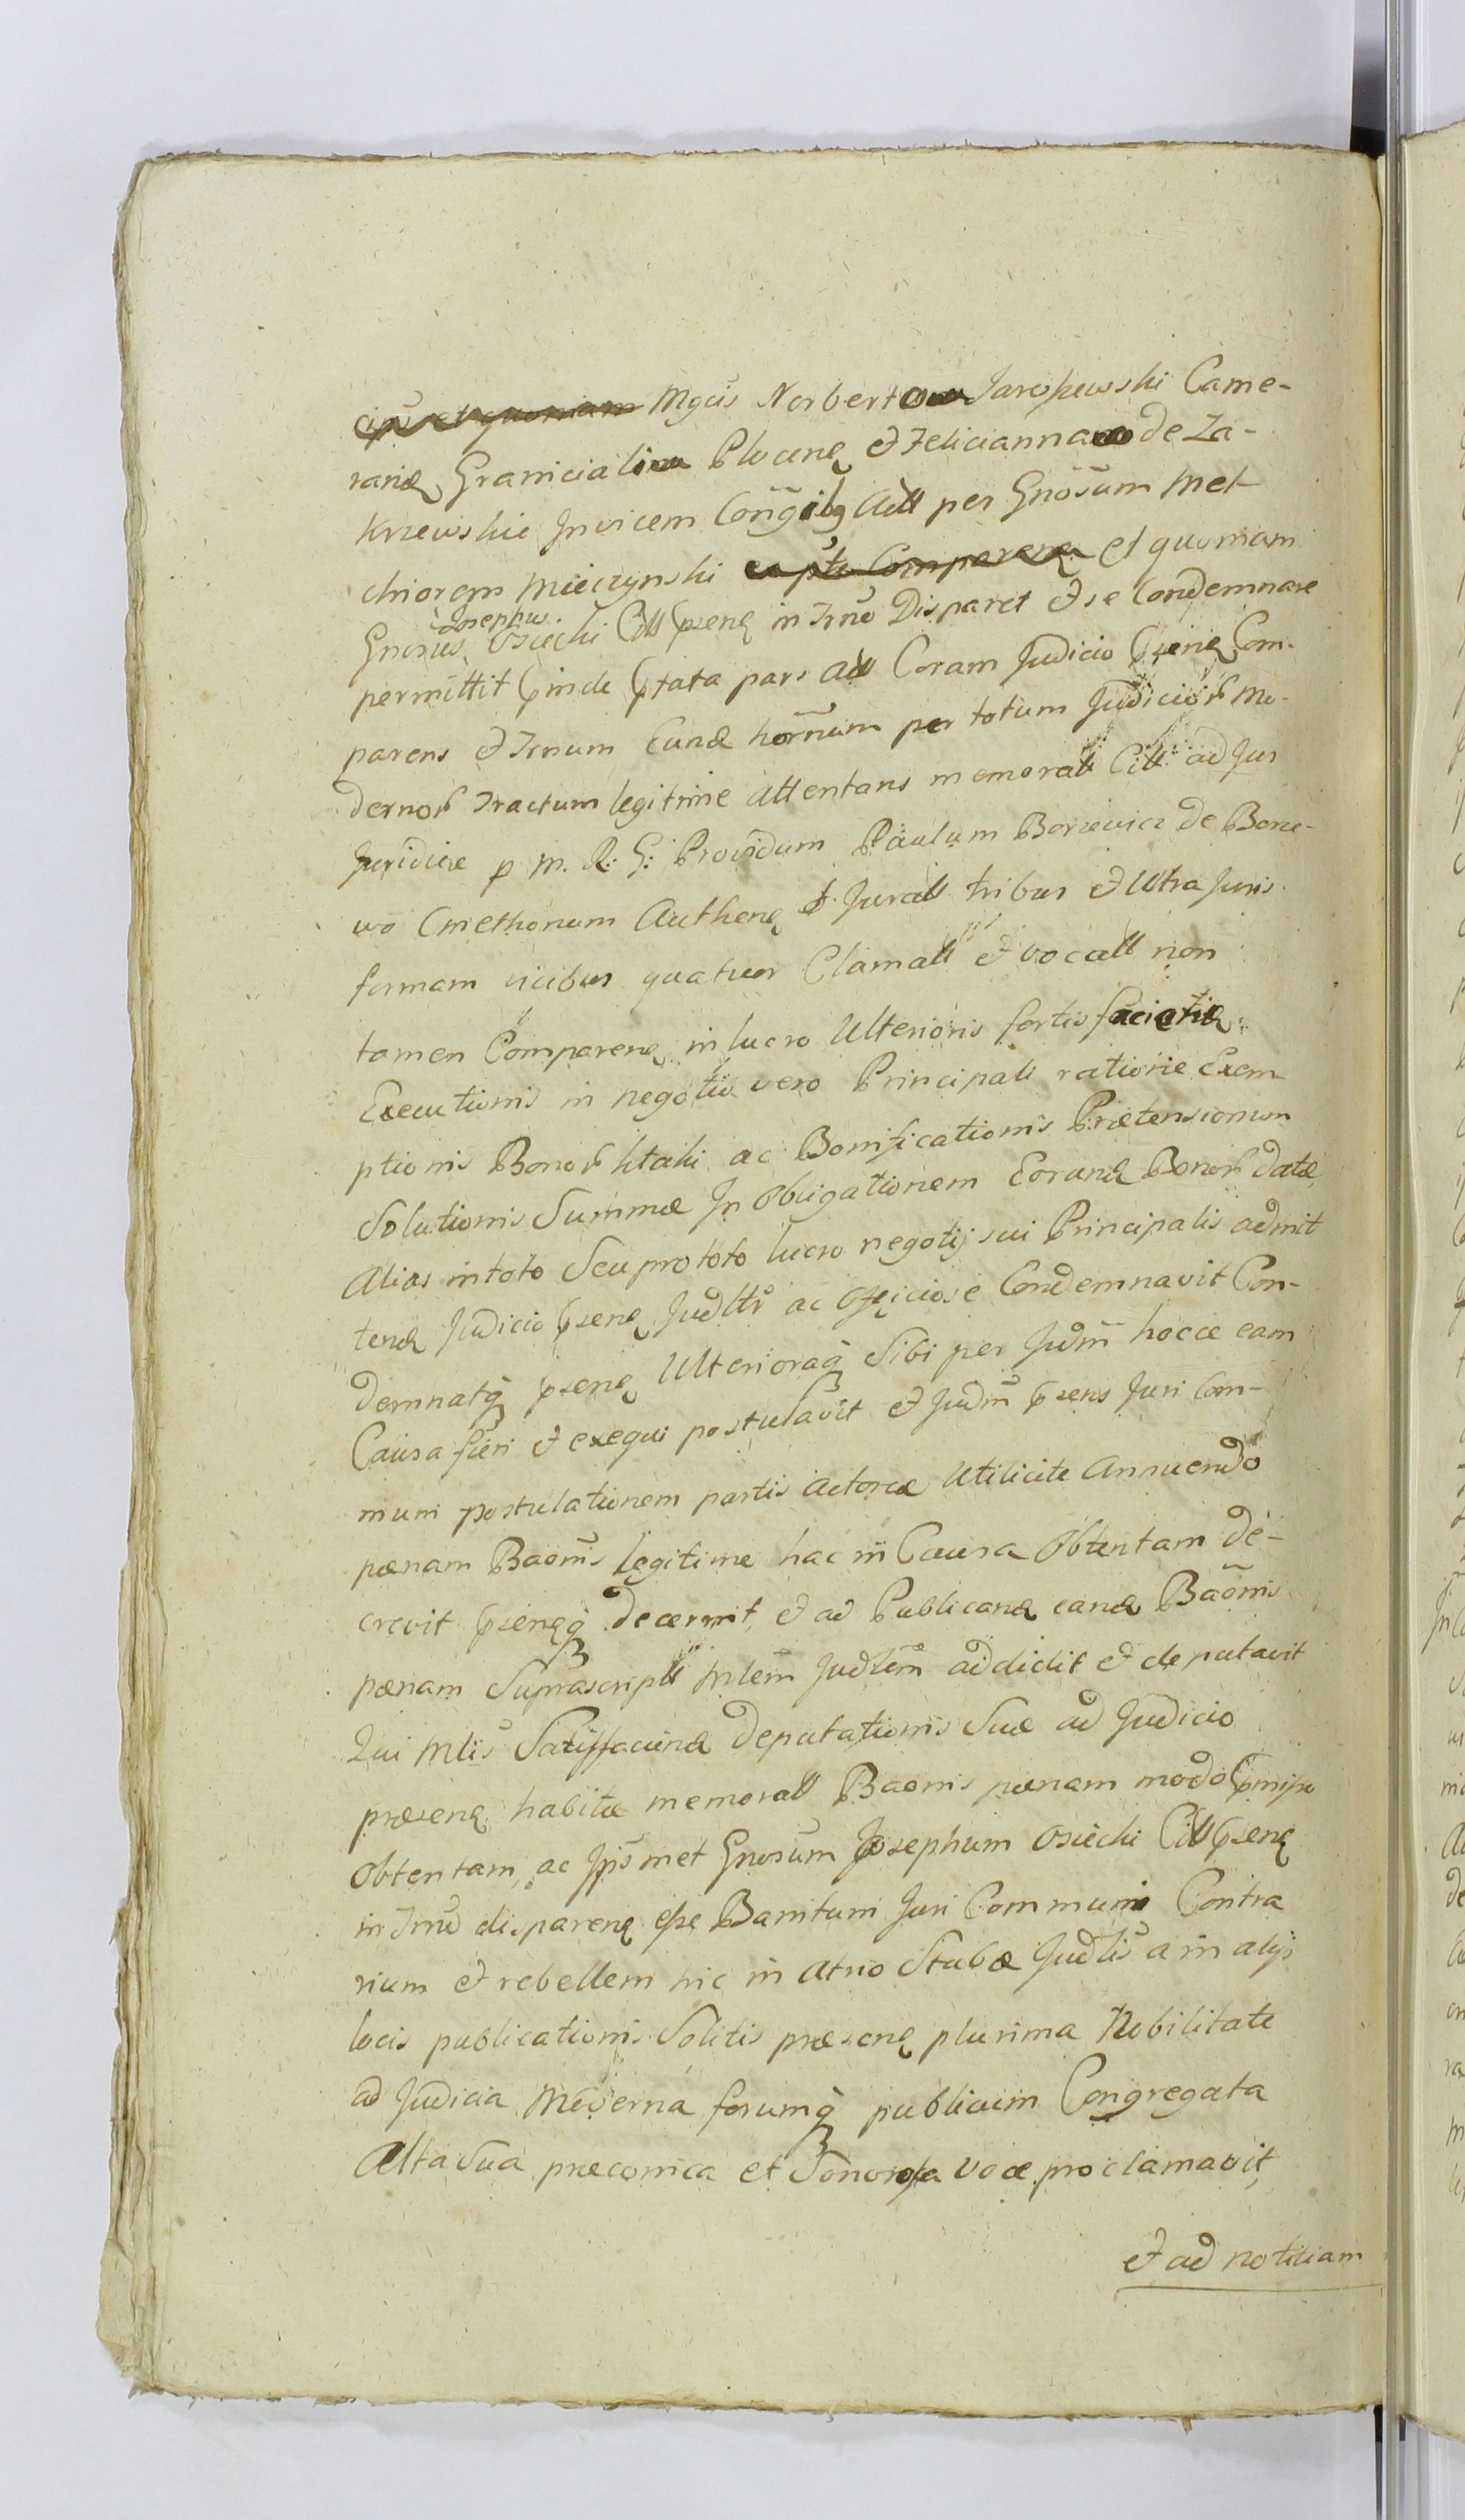 Mgcis Norberto Jaroszewski Came-
rario Graniciali Plocenę et Felicianna de Za-
krzewskie Invicem Conggibꝯ Act per Gnosum Mel-
chiorem Mieczynski et quoniam
Josephus
Gnosus Osiecki Citt pńsenę in Trno Disparet et se Condemnare
permittit pinde pfata pars Act Coram Judicio pńsenę Com-
parens et Trnum Eund hornum per totum Judicior Mo-
dernor Tractum legitime attentans memoratt Citt ad Jus
Juridice p M. R: G: Providum Paulum Borzewicz de Borze-
wo Cmethonum Authenę et Juratt tribus et Ultra Juris
formam vicibus quatuor Clamatt et vocatt non
tamen Comparenę in lucro Ulterioris fortis faciend
Executionis in negotio vero Principali ratione Exem-
ptionis Bonor ac Bonificationis Prætensionum
Solutionis Summæ In Obligationem Eorund Bonor datæ
Alias in toto Seu pro toto lucro negotij sui Principalis admit
tend Judicio pńsenę Judltr ac Officiose Condemnavit Con-
demnatq pńsenę Ulterioraq Sibi per Judm hocce eam
Causa fieri et exequi postulavit et Judm pńsens Juri Com-
muni postulationem partis Actoreæ Utilicite Annuendo
pænam Baonis legitime hac in Causa Obtentam de-
crevit pńsenęq decernit, et ad Publicand eand Baonis
pænam Suprascriptt Mlem Judlem addidit et deputavit
Qui Mlis Satisfaciend Deputationis Suæ ad Judicio
præsenę habitæ memoratt Baonis pænam modo pmisso
Obtentam, ac Ipsmet Gnosum Josephum Osiecki Citt pńsenę
in Trno disparenę esse Banitum Juri Communi Contra
rium et rebellem hic in Atrio Stubæ Judlis a in alijs
locis publicationis Solitis præsenę plurima Nobilitate
ad Judicia Moderna forumq publicum Congregata
Alta Sua præconica et Sonorosa voce proclamavit,
et ad notitiam